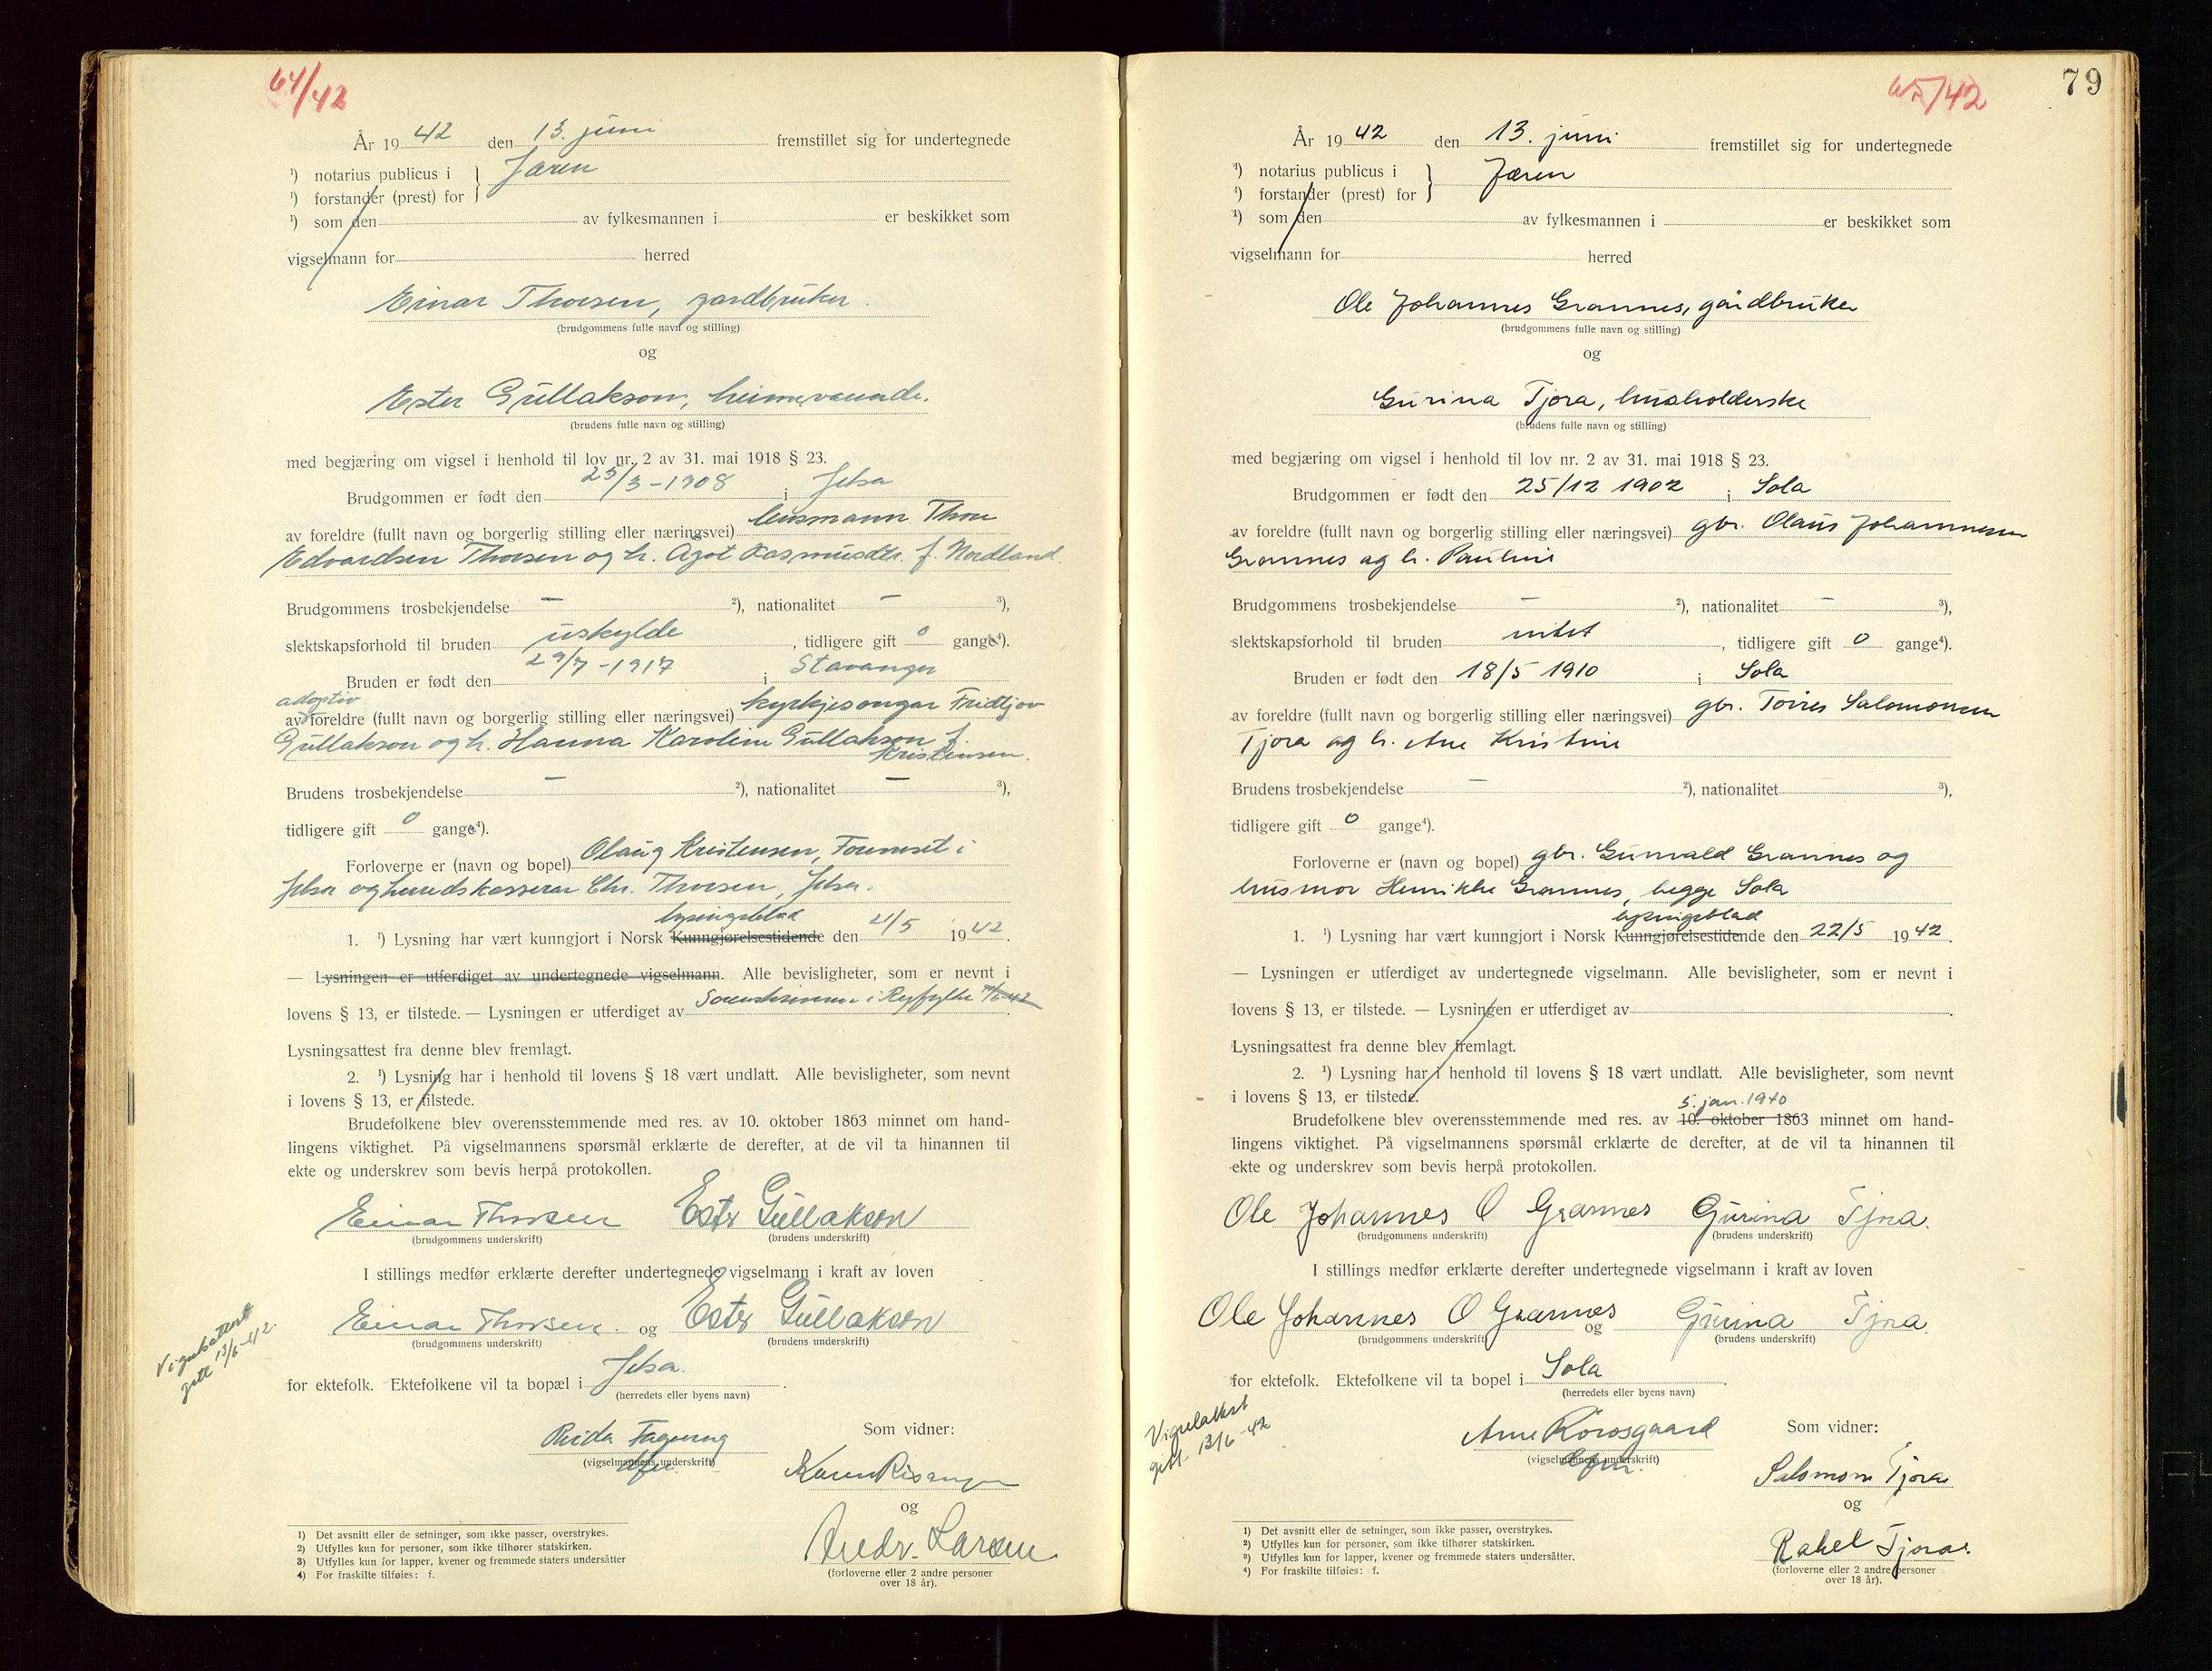 64/42
År 1942 den 13. juni fremstillet sig for undertegnede
¹) notarius publicus i } Jæren
¹) forstander (prest) for
¹) som den av fylkesmannen i er beskikket som
vigselmann for herred
Einar Thorsen, gardbruker.
(brudgommens fulle navn og stilling)
og
Ester Gullakson, heimeverande.
(brudens fulle navn og stilling)
med begjæring om vigsel i henhold til lov nr. 2 av 31. mai 1918 § 23.
Brudgommen er født den 25/3-1908 i Jelsa
av foreldre (fullt navn og borgerlig stilling eller næringsvei) husmann Thore
Edvardsen Thorsen og h. Agot Rasmusdtr. f. Nordland.
Brudgommens trosbekjendelse — ²), nationalitet — ³),
slektskapsforhold til bruden uskylde, tidligere gift 0 gange⁴).
Bruden er født den 29/7-1917 i Stavanger
adoptiv
av foreldre (fullt navn og borgerlig stilling eller næringsvei) kyrkjesongar Fridtjov
Gullakson og h. Hanna Karoline Gullakson f.
Kristensen.
Brudens trosbekjendelse — ²), nationalitet — ³),
tidligere gift 0 gange⁴).
Forloverne er (navn og bopel) Olaug Kristensen, Foreneset i
Jelsa og heradskasserar Chr. Thorsen, Jelsa.
lysingsblad
1. ¹) Lysning har vært kunngjort i Norsk Kunngjørelsestidende den 21/5 1942.
— Lysningen er utferdiget av undertegnede vigselmann. Alle bevisligheter, som er nevnt i
lovens § 13, er tilstede. — Lysningen er utferdiget av Sorenskriveren i Ryfylke
Lysningsattest fra denne blev fremlagt.
2. ¹) Lysning har i henhold til lovens § 18 vært undlatt. Alle bevisligheter, som nevnt
i lovens § 13, er tilstede.
Brudefolkene blev overensstemmende med res. av 10. oktober 1863 minnet om hand-
lingens viktighet. På vigselmannens spørsmål erklærte de derefter, at de vil ta hinannen til
ekte og underskrev som bevis herpå protokollen.
Einar Thorsen Ester Gullakson
(brudgommens underskrift) (brudens underskrift)
I stillings medfør erklærte derefter undertegnede vigselmann i kraft av loven
Einar Thorsen. og Ester Gullakson
(brudgommens underskrift) (brudens underskrift)
Vigselattest
gitt 13/6-42.
for ektefolk. Ektefolkene vil ta bopæl i Jelsa.
(herredets eller byens navn)
Som vidner:
(vigselmannens underskrift)
Karen
og
Andr. Larsen
(forloverne eller 2 andre personer
over 18 år).
1) Det avsnitt eller de setninger, som ikke passer, overstrykes.
2) Utfylles kun for personer, som ikke tilhører statskirken.
3) Utfylles kun for lapper, kvener og fremmede staters undersåtter
4) For fraskilte tilføies: f.
65/42
79
År 1942 den 13. juni fremstillet sig for undertegnede
¹) notarius publicus i } Jæren
¹) forstander (prest) for
¹) som den av fylkesmannen i er beskikket som
vigselmann for herred
Ole Johannes Grannes, gårdbruker
(brudgommens fulle navn og stilling)
og
Gurina Tjora, husholderske
(brudens fulle navn og stilling)
med begjæring om vigsel i henhold til lov nr. 2 av 31. mai 1918 § 23.
Brudgommen er født den 25/12 1902 i Sola
av foreldre (fullt navn og borgerlig stilling eller næringsvei) gbr. Olaus Johannesen
Grannes og h. Pauline
Brudgommens trosbekjendelse — ²), nationalitet — ³),
slektskapsforhold til bruden intet, tidligere gift 0 gange⁴).
Bruden er født den 18/5 1910 i Sola
av foreldre (fullt navn og borgerlig stilling eller næringsvei) gbr. Torres Salomonsen
Tjora og h. Ane Kristine
Brudens trosbekjendelse — ²), nationalitet ³),
tidligere gift 0 gange⁴).
Forloverne er (navn og bopel) gbr. Gunvald Grannes og
husmor Henrikke Grannes, begge Sola
lysingsblad
1. ¹) Lysning har vært kunngjort i Norsk Kunngjørelsestidende den 22/5 1942.
— Lysningen er utferdiget av undertegnede vigselmann. Alle bevisligheter, som er nevnt i
lovens § 13, er tilstede. — Lysningen er utferdiget av
Lysningsattest fra denne blev fremlagt.
2. ¹) Lysning har i henhold til lovens § 18 vært undlatt. Alle bevisligheter, som nevnt
i lovens § 13, er tilstede.
5. jan. 1940
Brudefolkene blev overensstemmende med res. av 10. oktober 1863 minnet om hand-
lingens viktighet. På vigselmannens spørsmål erklærte de derefter, at de vil ta hinannen til
ekte og underskrev som bevis herpå protokollen.
Ole Johannes O Grannes Gurina Tjora.
(brudgommens underskrift) (brudens underskrift)
I stillings medfør erklærte derefter undertegnede vigselmann i kraft av loven
Ole Johannes O Grannes og Gurina Tjora
(brudgommens underskrift) (brudens underskrift)
for ektefolk. Ektefolkene vil ta bopel i Sola
(herredets eller byens navn)
Vigselattest
gitt 13/6-42
Arne Som vidner:
(vigselmannens underskrift)
Salomon Tjora
og
Rakel Tjora.
(forloverne eller 2 andre personer
over 18 år).
1) Det avsnitt eller de setninger, som ikke passer, overstrykes.
²) Utfylles kun for personer, som ikke tilhører statskirken.
³) Utfylles kun for lapper, kvener og fremmede staters undersåtter.
⁴) For fraskilte tilføies: f.